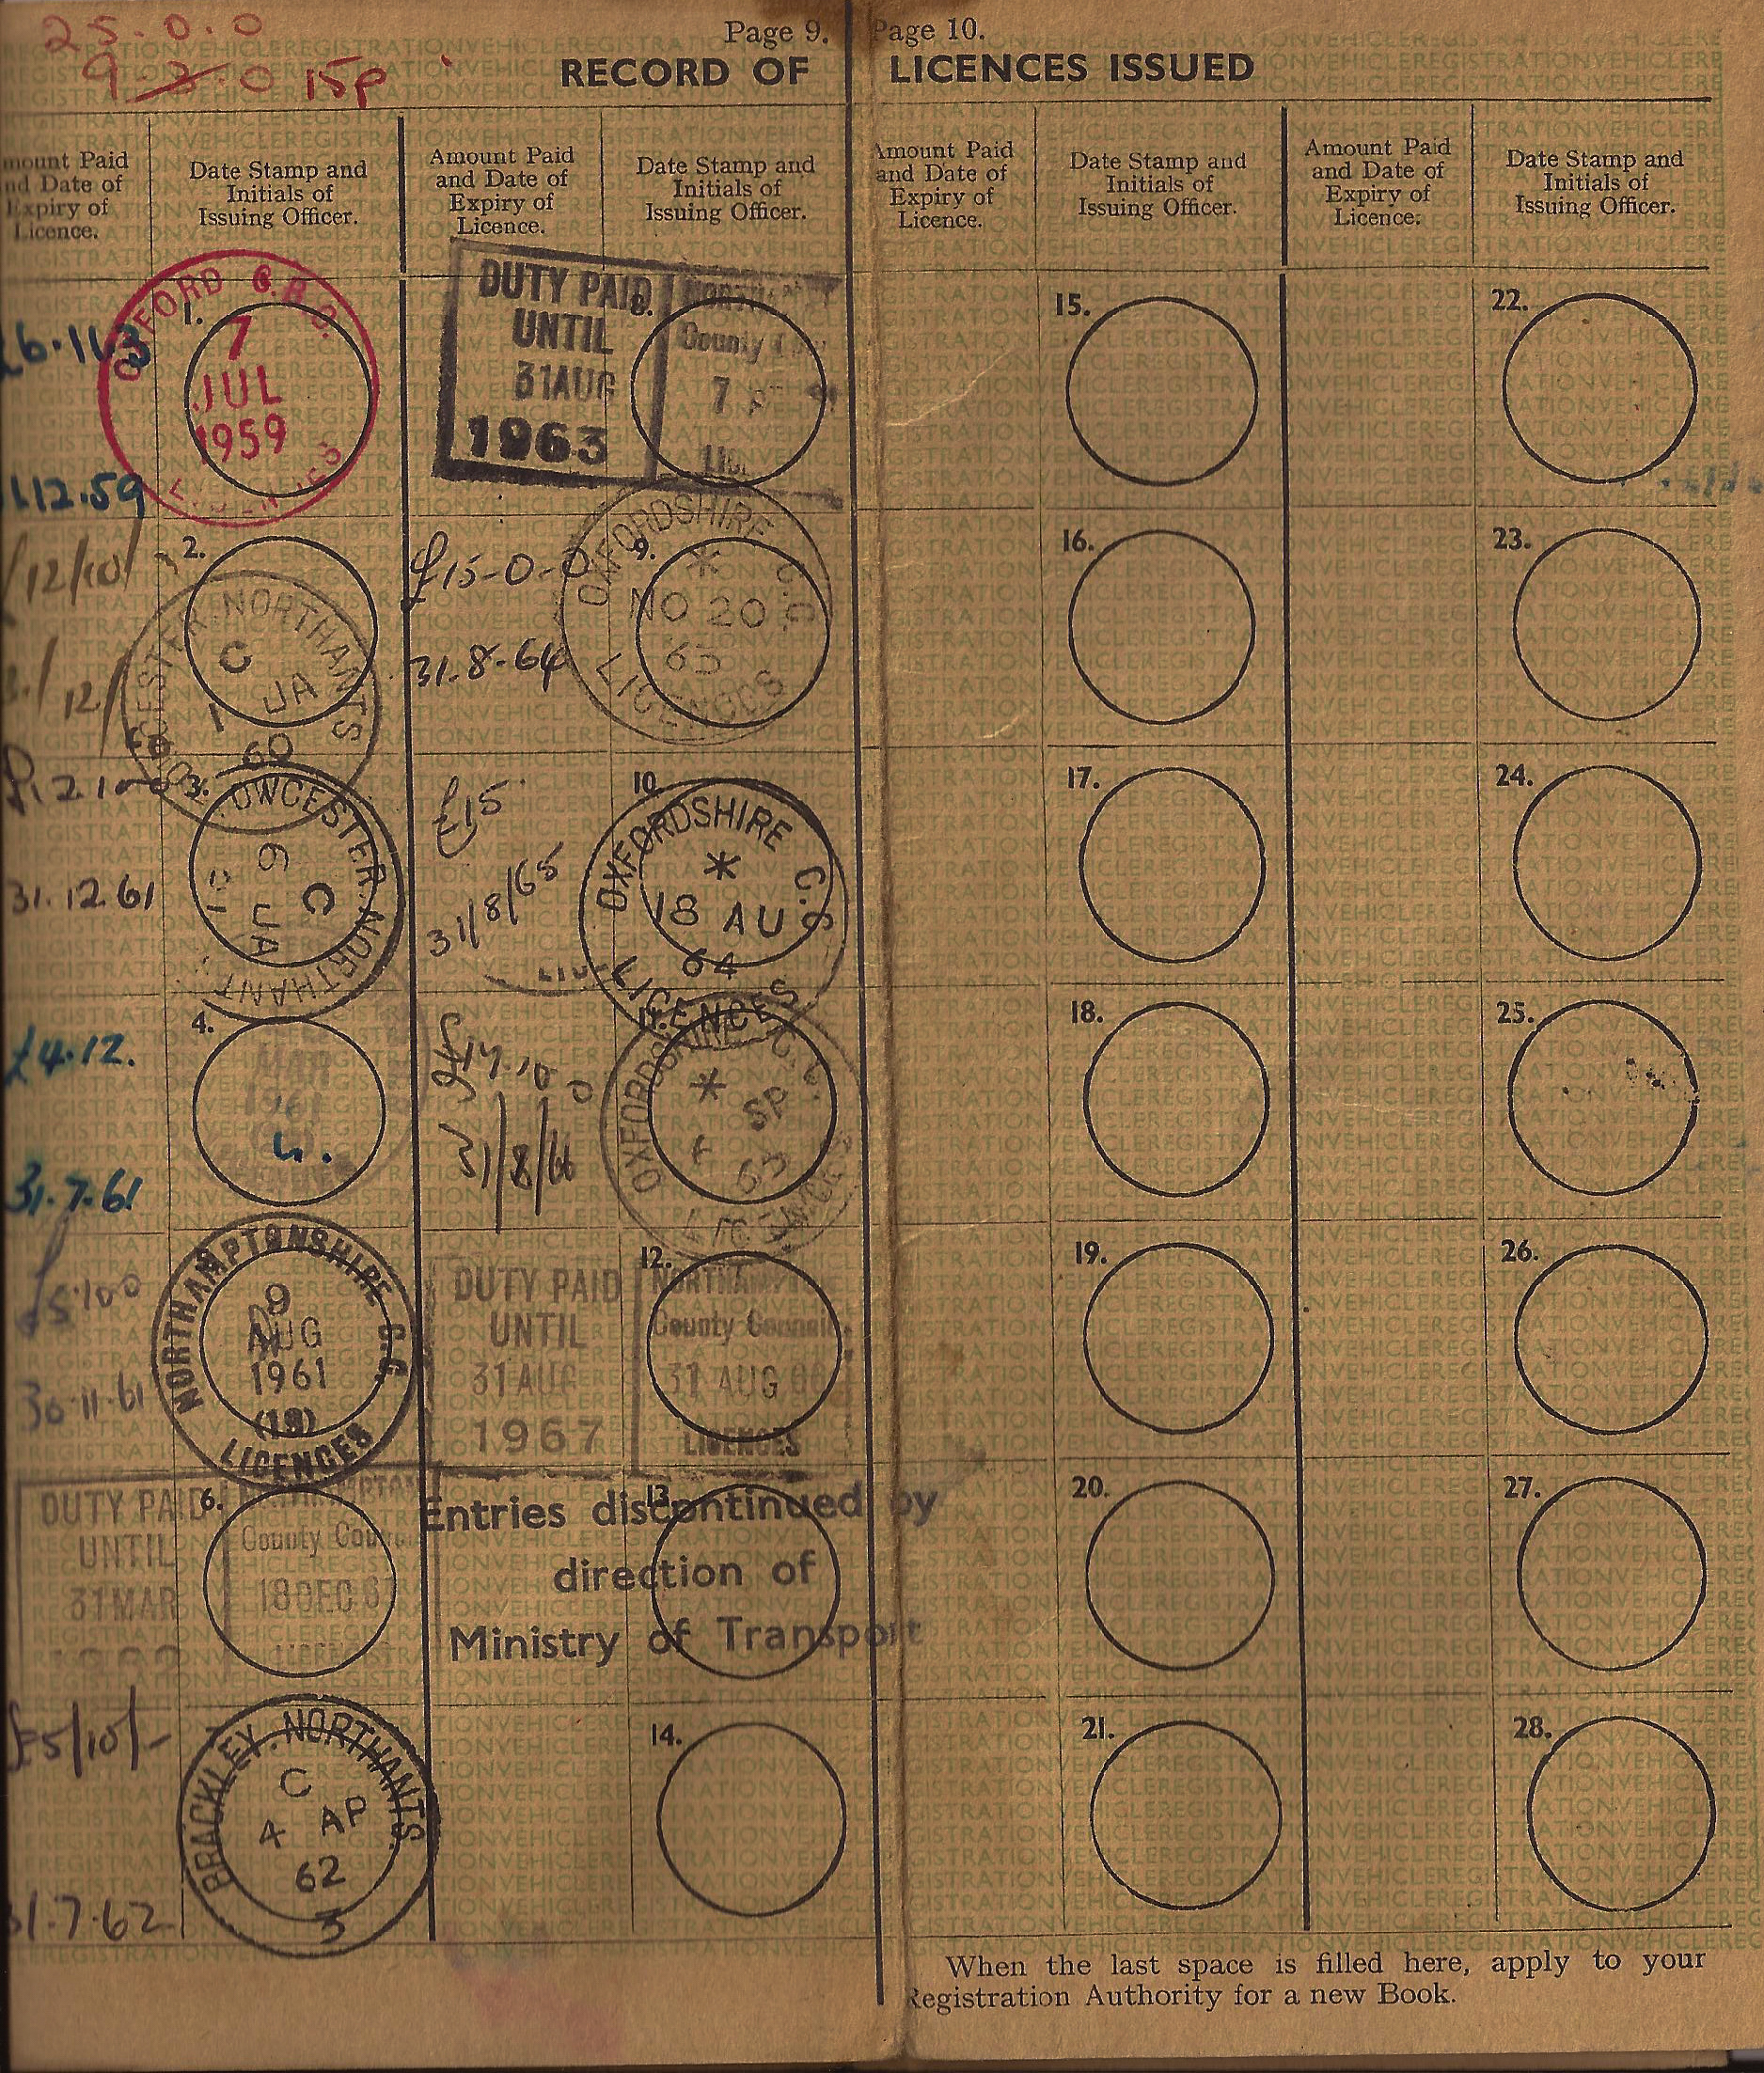 25.0.0
Page 9. Page 10.
15p
RECORD OF LICENCES ISSUED
mount Paid
nd Date of
Expiry of
Licence.
Date Stamp and
Initials of
Issuing Officer.
Amount Paid
and Date of
Expiry of
Licence.
Date Stamp and
Initials of
Issuing Officer.
Amount Paid
and Date of
Expiry of
Licence.
Date Stamp and
Initials of
Issuing Officer.
Amount Paid
and Date of
Expiry of
Licence.
Date Stamp and
Initials of
Issuing Officer.
1.
OXFORD
7
JUL
1959
12.59
2.
NORTHANTS
C
1 JA
60
3.
OWCESTER NORTHANT
C
6 JA
31.12.61
4.
£4.12.
MAR
1961
31.7.61
NORTHAMPTONSHIRE C.C
9
AUG
1961
(18)
LICENCES
30.11.61
6.
DUTY PAID
UNTIL
31 MAR
County
18 DEC
£5/10/-
BRACKLEY. NORTHANTS.
C
4 AP
62
3
31.7.62
8.
DUTY PAID
UNTIL
31 AUG
1963
County
7
9.
£15-0-0
31.8.64
OXFORDSHIRE C.C.
*
NO 20
63
LICENCES
10.
£15
31/8/65
OXFORDSHIRE C.C
*
18 AU
64
LICENCES
11.
£17.10.0
31/8/66
OXFORDSHIRE
*
SP
65
12.
DUTY PAID
UNTIL
31 AUG
1967
County Council
31 AUG
LICENCES
13.
Entries discontinued by
direction of
Ministry of Transport
14.
15.
16.
17.
18.
19.
20.
21.
22.
23.
24.
25.
26.
27.
28.
When the last space is filled here, apply to your
Registration Authority for a new Book.